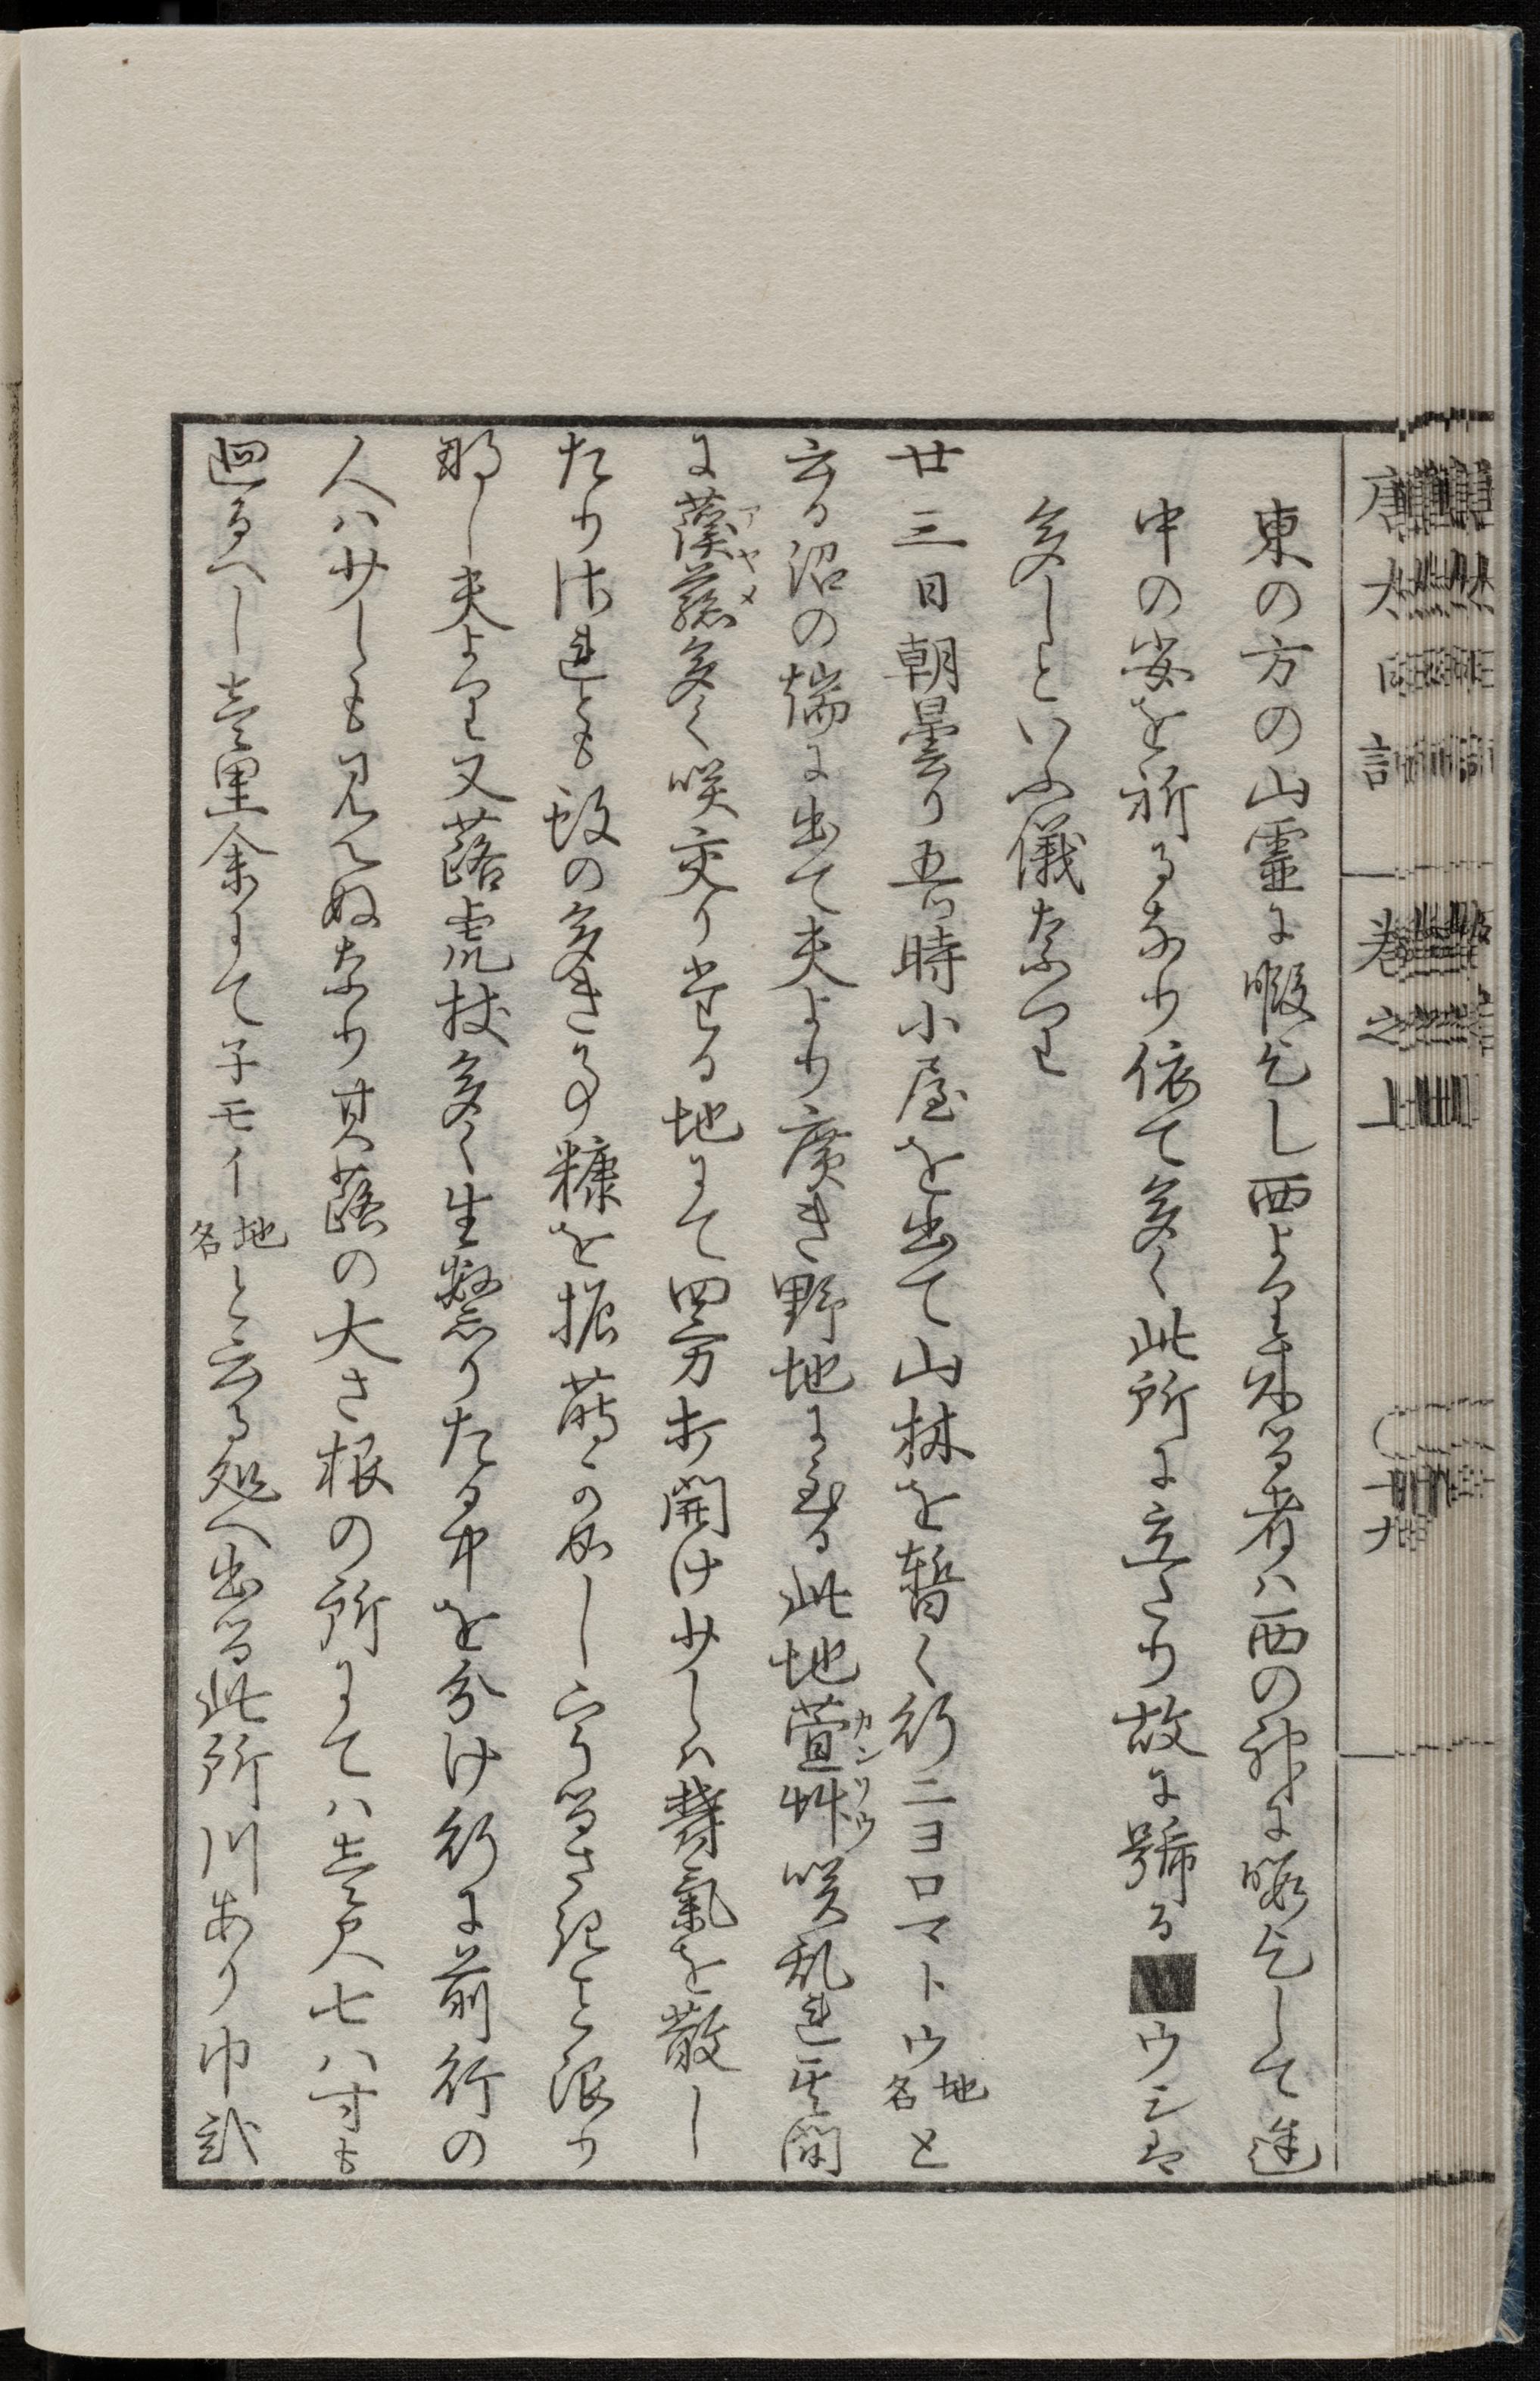 唐太日記　巻之上　十九
東の方の山靈に暇乞し西より来る者ハ西の神に暇乞して途
中の安を祈るなり依て多く此所に立たり故に號る■ウシは
多しといふ儀なり
廿三日朝曇り五時小屋を出て山林を暫く行ニヨロマトウ地名と
云る沼の端に出て夫より廣き野地に至る此地萱艸カンゾウ咲乱れ其間
に蘐䕺アヤメ多く咲交り当る地にて四方打開け少しハ欝氣を散し
たり併れとも蚊の多き事糠を振蒔くか如し
那し夫より又蕗虎杖多く生繁りたる中を分け行に前行の
人ハ少しも見えぬなり其蕗の大さ根の所にてハ壱尺七八寸も
廻るへし壱里余にて子モイ地名と云る処へ出る此所川あり巾弐